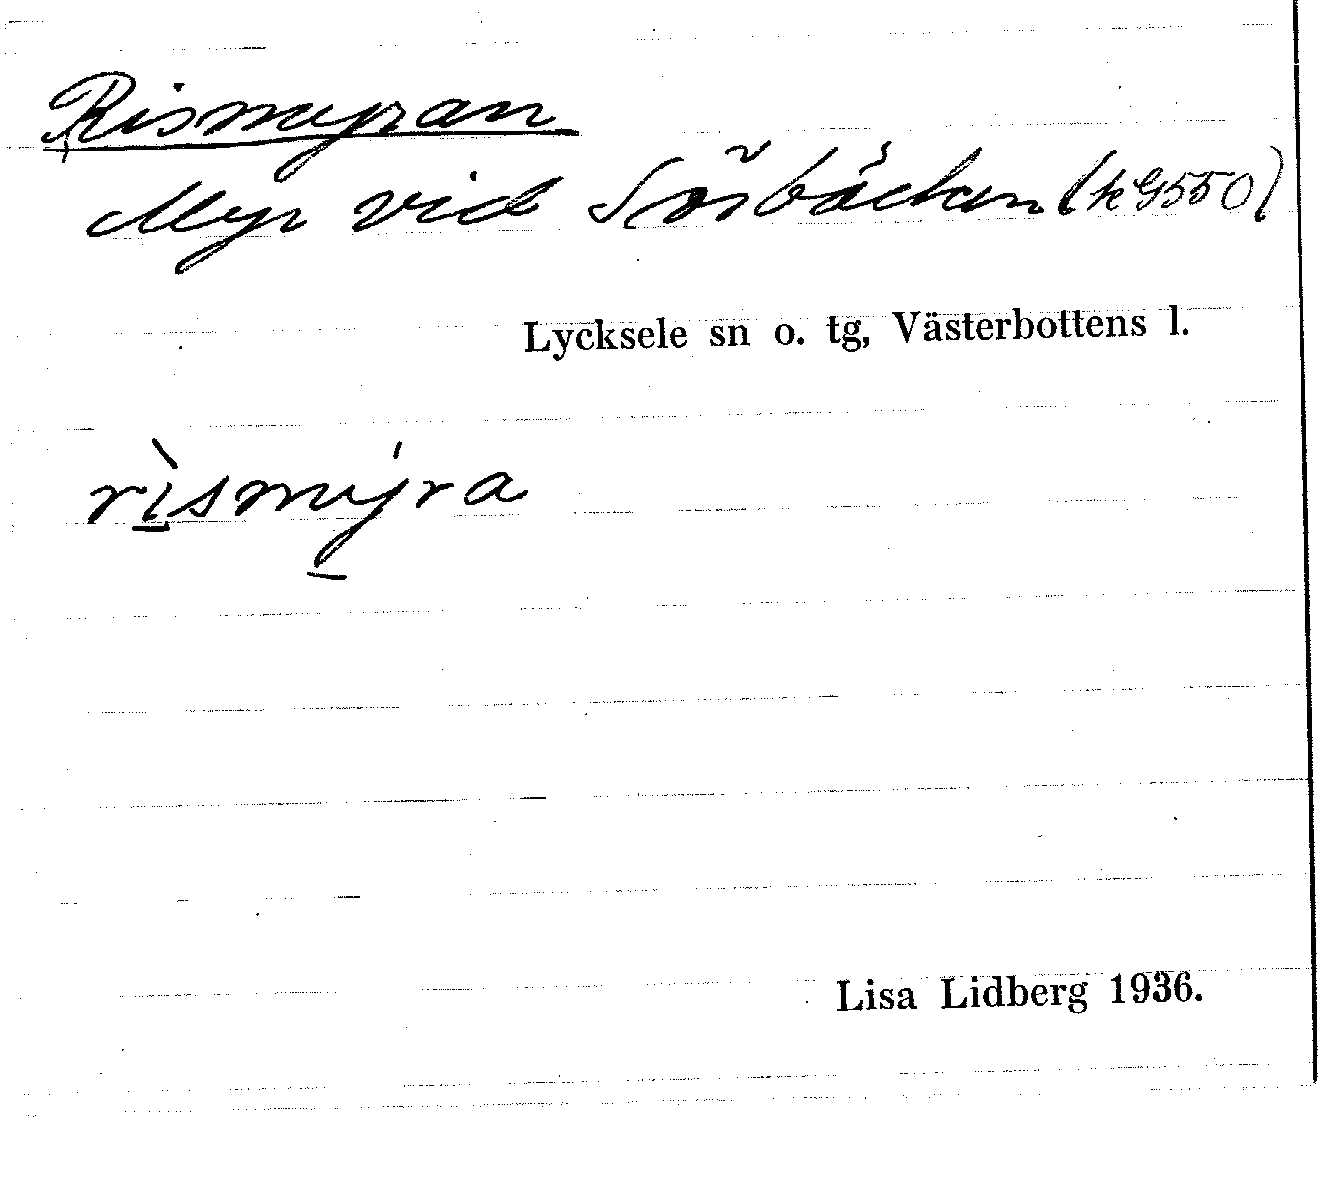 Rismyran
Myr vid Sörbäcken (k 9550)
Lycksele sn o. tg, Västerbottens l.
rìsmýra
Lisa Lidberg 1936.